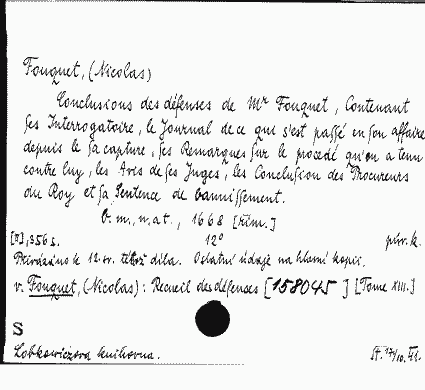 Fouquet, (Nicolas)
Conclusions des défenses de Mr Fouquet, Contenant
ses Interrogatoire, le Journal de ce qui s'est passé en son affaire
depuis le sa capture, ses Remarques sur le procedé qu'on a tenu
contre luy, les Avis de ses Juges, les Conclusion des Procureurs
du Roy et sa Sentence de bannissement.
b. m., n. at., 1668 [Rím.]
356 s. 12° pův. k.
Přivázáno k 12. sv. téhož díla. Ostatní údaje na hlavní kopii.
v. Fouquet, (Nicolas): Recueil des défenses [158045] [Tome XIII.]
S
Lobkowiczova knihovna. St. 17/10. 41.